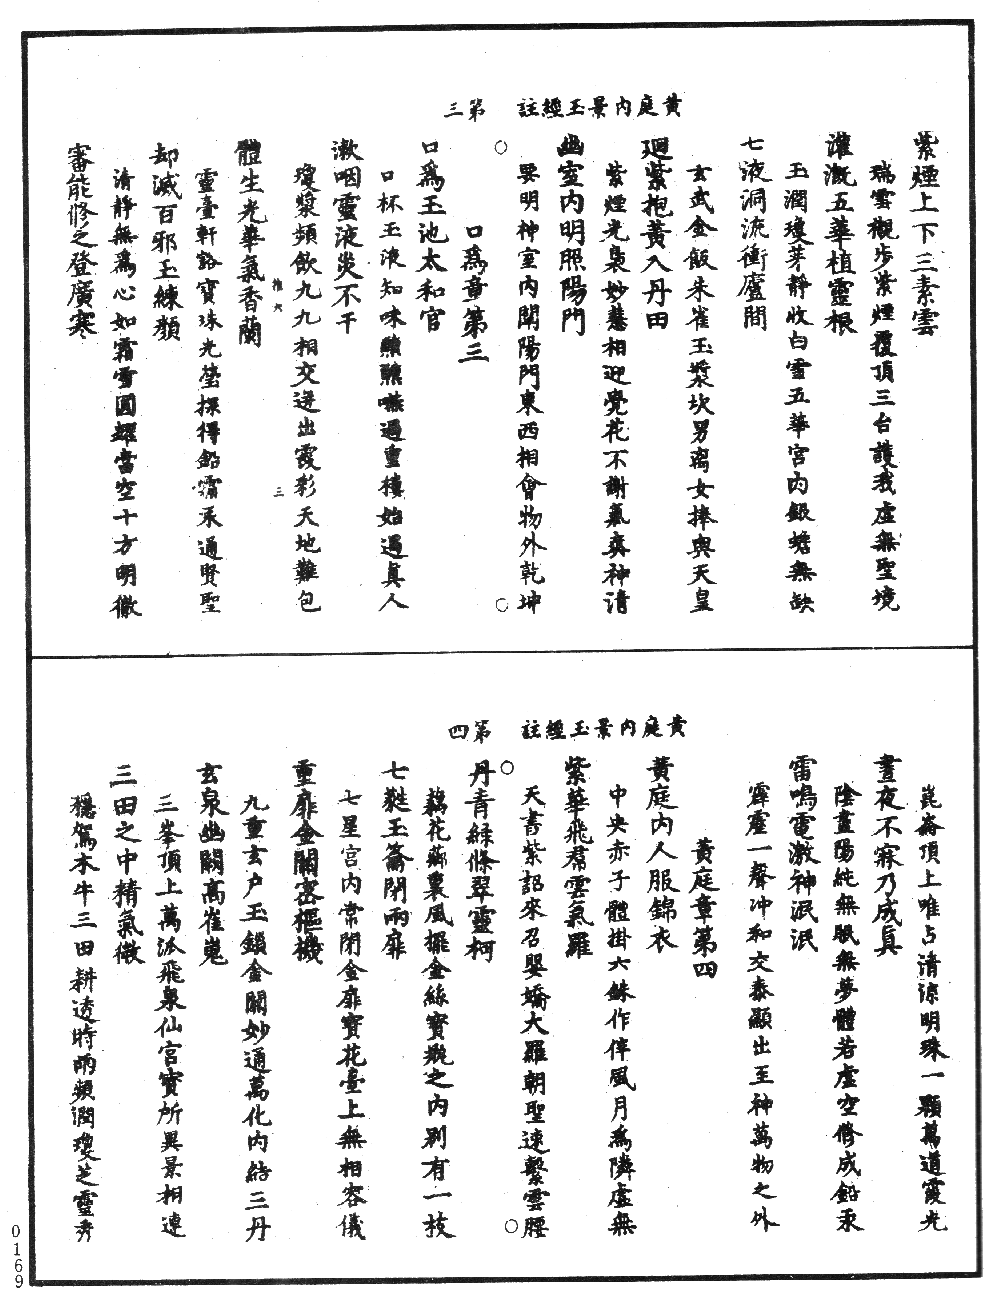 黃庭內景玉經註　第三
紫煙上下三素雲
瑞雲觀步紫煙覆頂三台護我虛無聖境
灌溉五華植靈根
玉潤瓊芽靜收白雪五華宮內銀蟾無缺
七液洞流衝廬間
玄武金飯朱雀玉漿坎男离女捧與天皇
廻紫抱黃入丹田
紫煙光裊妙慧相迎覺花不謝氣爽神清
幽室內明照陽門
要明神室內闢陽門東西相會物外乾坤
口爲章第三
口爲玉池太和官
口杯玉液知味醺醺嚥過重樓始遇真人
漱咽靈液災不干
瓊漿頻飲九九相交迸出霞彩天地難包
推六　三
體生光華氣香蘭
靈臺軒豁寶珠光瑩採得鉛霜永通賢聖
却滅百邪玉練顏
清靜無爲心如霜雪圓耀當空十方明徹
審能修之登廣寒
黃庭內景玉經註　第四
崑崙頂上唯占清涼明珠一顆萬道霞光
晝夜不寐乃成真
陰盡陽純無眠無夢體若虛空修成鉛汞
雷鳴電激神泯泯
霹靂一聲冲和交泰顯出至神萬物之外
黃庭章第四
黃庭內人服錦衣
中央赤子體掛六銖作伴風月爲隣虛無
紫華飛裙雲氣羅
天書紫詔來召嬰嬌大羅朝聖速繫雲腰
丹青綠條翠靈柯
藕花蘂裏風擺金絲寶瓶之內別有一枝
七蕤玉籥閉兩扉
七星宮內常閉金扉寶花臺上無相容儀
重扉金關密樞機
九重玄户玉鎖金關妙通萬化內結三丹
玄泉幽闕高崔嵬
三峯頂上萬派飛泉仙宮寳所異景相連
三田之中精氣微
穩駕木牛三田耕透時時頻潤瓊芝靈秀
0169